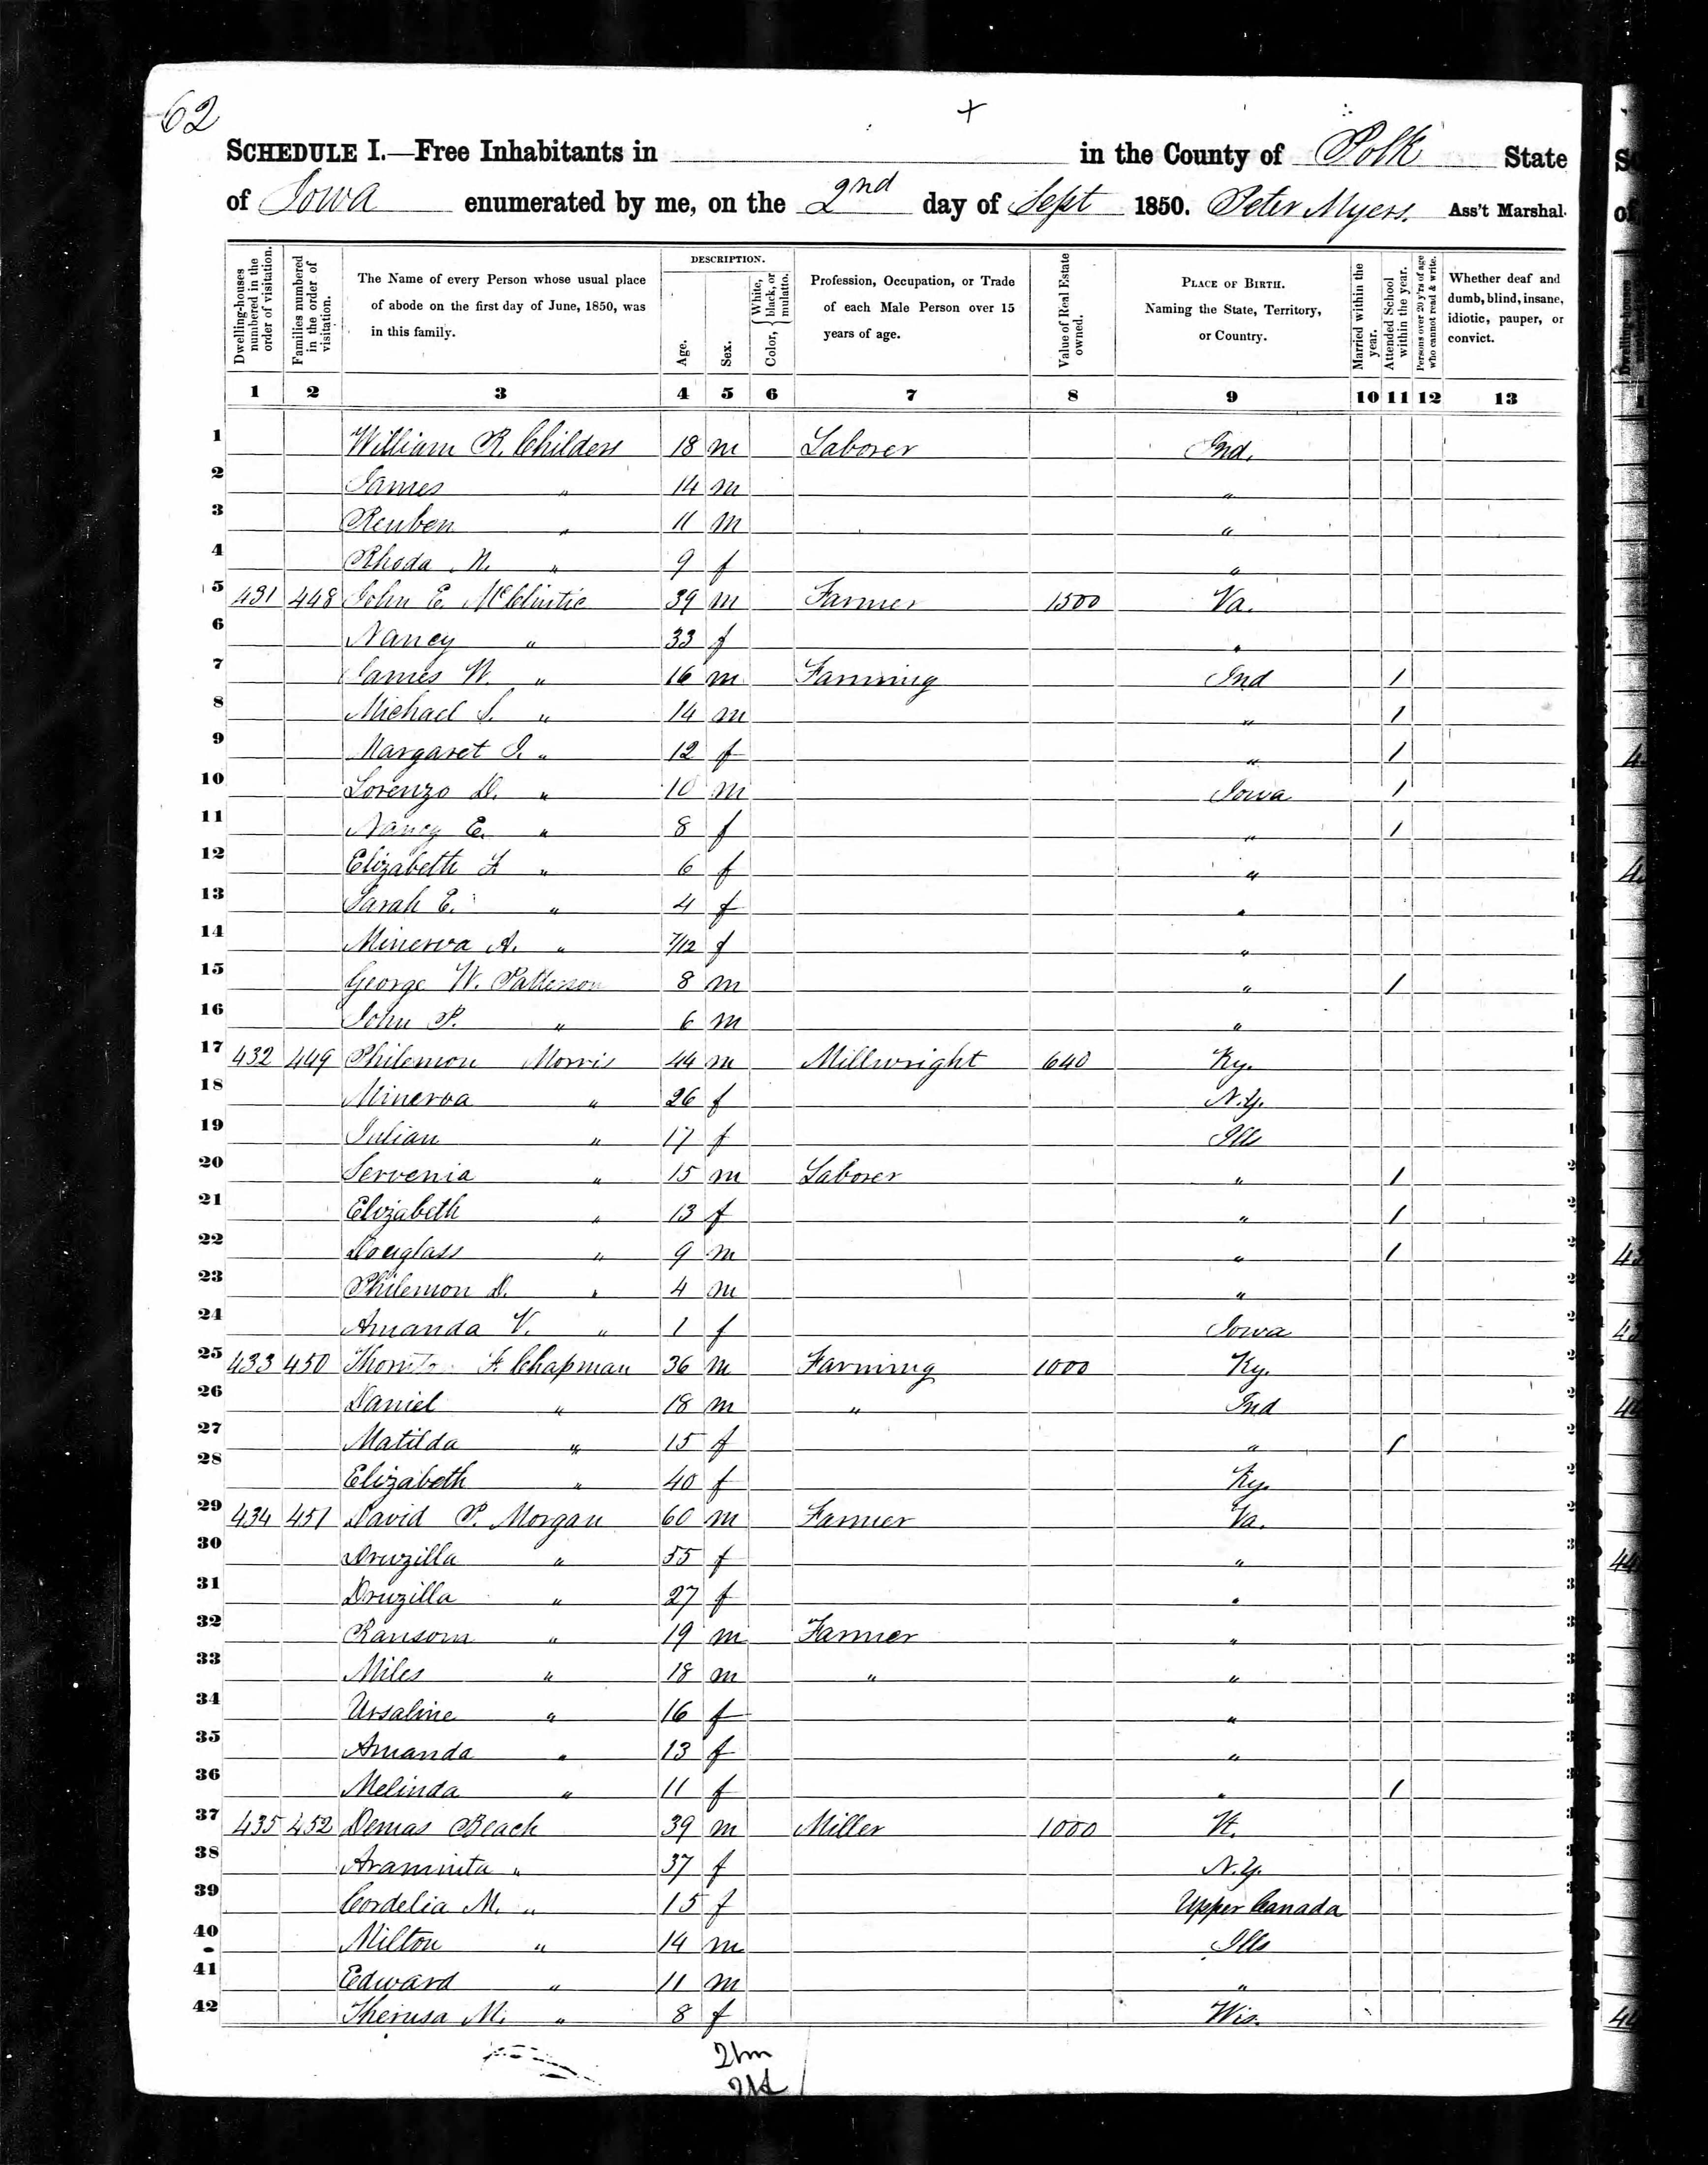 62
+
SCHEDULE I.—Free Inhabitants in in the County of Polk State
of Iowa enumerated by me, on the 2nd day of Sept 1850. Peter Myers. Ass't Marshal.
Dwelling-houses numbered in the order of visitation.
Families numbered in the order of visitation.
The Name of every Person whose usual place of abode on the first day of June, 1850, was in this family.
DESCRIPTION.
Age.
Sex.
Color, { White, black, or mulatto.
Profession, Occupation, or Trade of each Male Person over 15 years of age.
Value of Real Estate owned.
PLACE OF BIRTH. Naming the State, Territory, or Country.
Married within the year.
Attended School within the year.
Persons over 20 y'rs of age who cannot read & write.
Whether deaf and dumb, blind, insane, idiotic, pauper, or convict.
1 2 3 4 5 6 7 8 9 10 11 12 13
1 William R. Childers 18 m Laborer Ind.
2 James " 14 m "
3 Reuben " 11 m "
4 Rhoda N. " 9 f "
5 431 448 John E. McClintic 39 m Farmer 1500 Va.
6 Nancy " 33 f "
7 James W. " 16 m Farming Ind 1
8 Michael S. " 14 m " 1
9 Margaret J. " 12 f " 1
10 Lorenzo D. " 10 m Iowa 1
11 Nancy E. " 8 f " 1
12 Elizabeth F " 6 f "
13 Sarah E. " 4 f "
14 Minerva A. " 7/12 f "
15 George W. Patterson 8 m " 1
16 John P. " 6 m "
17 432 449 Philemon Morris 44 m Millwright 640 Ky.
18 Minerva " 26 f N.Y.
19 Julian " 17 f Ills
20 Servenia " 15 m Laborer " 1
21 Elizabeth " 13 f " 1
22 Douglass " 9 m " 1
23 Philemon D. " 4 m "
24 Amanda V. " 1 f Iowa
25 433 450 F. Chapman 36 m Farming 1000 Ky.
26 Daniel " 18 m " Ind
27 Matilda " 15 f " 1
28 Elizabeth " 40 f Ky.
29 434 451 David P. Morgan 60 m Farmer Va.
30 Druzilla " 55 f "
31 Druzilla " 27 f "
32 Ransom " 19 m Farmer "
33 Miles " 18 m " "
34 Ursaline " 16 f "
35 Amanda " 13 f "
36 Melinda " 11 f " 1
37 435 452 Demas Beach 39 m Miller 1000 Vt.
38 Araminta " 37 f N.Y.
39 Cordelia M. " 15 f Upper Canada
40 Milton " 14 m Ills
41 Edward " 11 m "
42 Therusa M. " 8 f Wis.
21m
21f